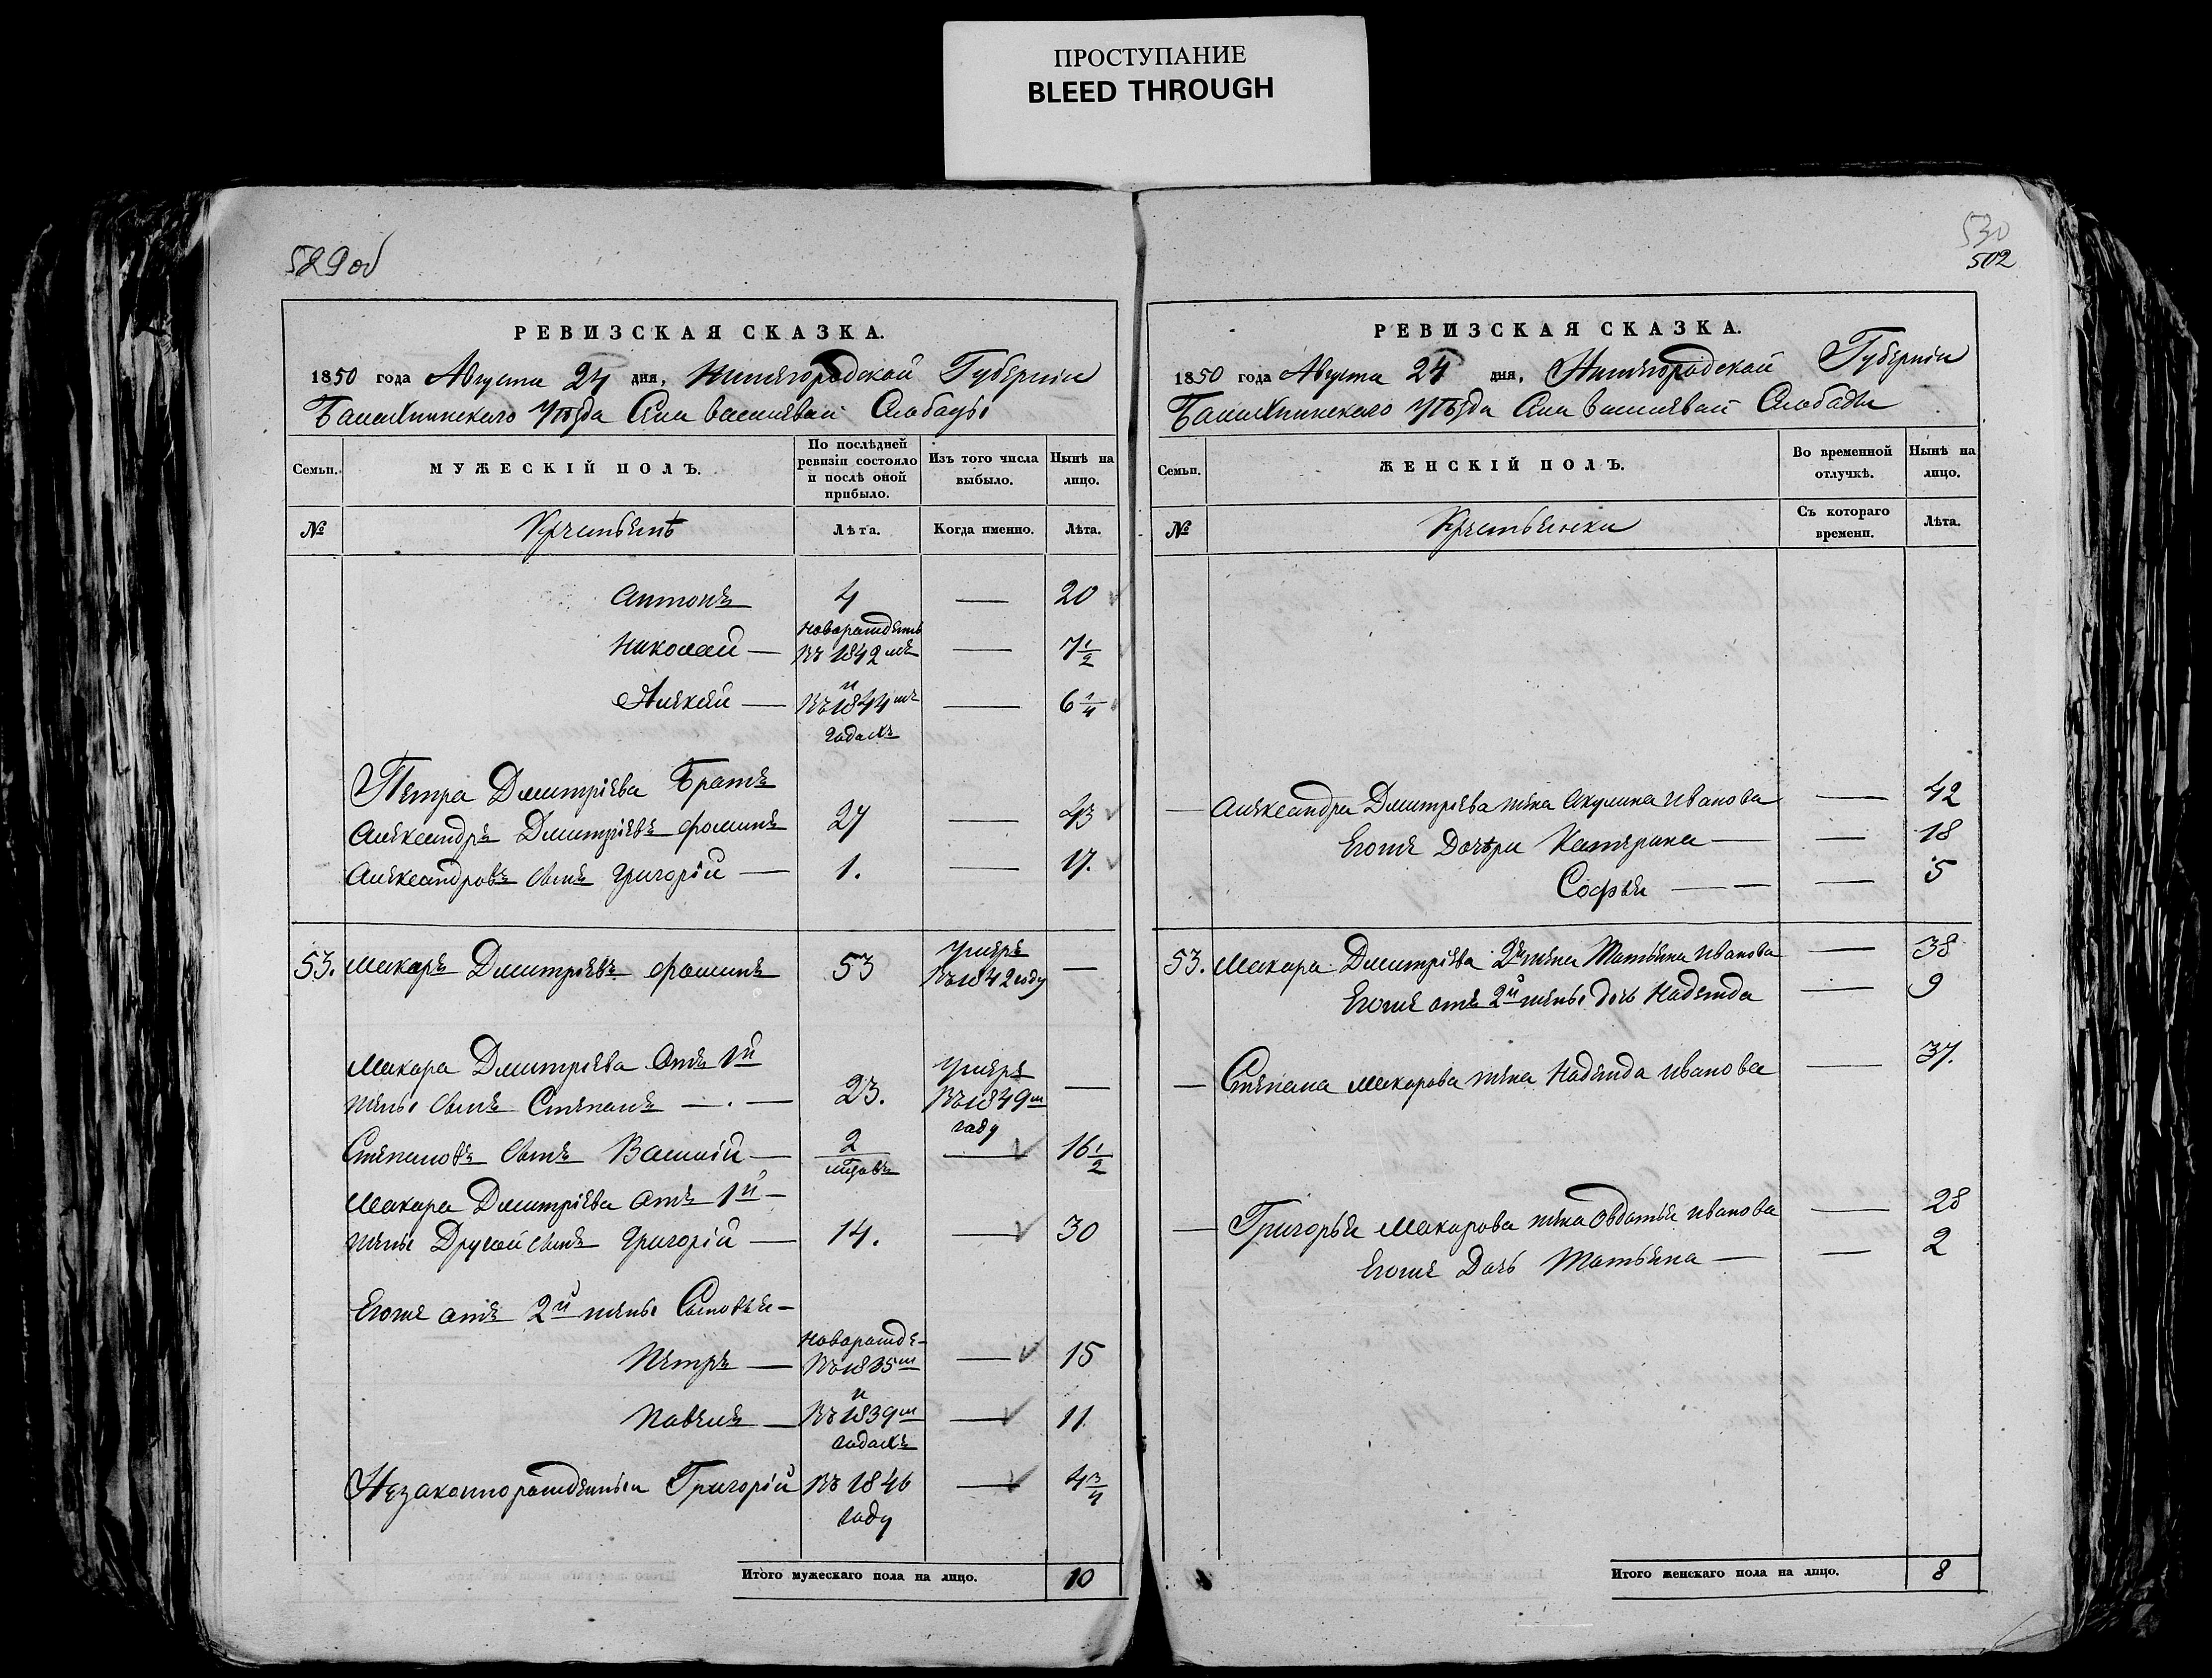 ПРОСТУПАНИЕ
BLEED THROUGH
529об
РЕВИЗСКАЯ СКАЗКА.
1850 года Августа 24 дня, Нижегородской Губерніи
Балахнинскаго Уѣзда Села Василевай Слабады
Семьи.
МУЖЕСКІЙ ПОЛЪ.
По послѣдней ревизіи состояло и послѣ оной прибыло.
Изъ того числа выбыло.
Нынѣ на лицо.
№
Крестьянъ
Лѣта.
Когда именно.
Лѣта.
Антонъ 4 — 20
Николай — новорожденъ въ 1842мъ — 7 1/2
Алексѣй — и въ 1844мъ годахъ — 6 1/4
Петра Дмитріева Братъ
Александръ Дмитріевъ Фоминъ 27 — 43
Александровъ сынъ Григорій — 1. — 17.
53. Макаръ Дмитріевъ Фоминъ 53 Умеръ въ 1842 году —
Макара Дмитріева отъ 1й
жены сынъ Степанъ — 23. Умеръ въ 1849м году —
Степановъ сынъ Василій — 2 мѣсяцовъ — 16 1/2
Макара Дмитріева отъ 1й —
жены Другой сынъ Григорій — 14. — 30
Егоже отъ 2й жены Сыновья —
Петръ — новорожде- въ 1835м — 15
Павелъ — и въ 1839м годахъ — 11
Незаконнорожденный Григорій въ 1846 году — 4 3/4
Итого мужескаго пола на лицо. 10
530
502
РЕВИЗСКАЯ СКАЗКА.
1850 года Августа 24 дня, Нижегородской Губерніи
Балахнинскаго Уѣзда Села Василевай Слабады
Семьи.
ЖЕНСКІЙ ПОЛЪ.
Во временной отлучкѣ.
Нынѣ на лицо.
№
Крестьянки
Съ котораго времени.
Лѣта.
— Александра Дмитріева жена Акулина Иванова — 42
Егоже Дочѣри Катерина — — 18
Софья — — — 5
53. Макара Дмитріева 2я жена Татьяна Иванова — 38
Егоже отъ 2й жены дочь Надежда — 9
— Степана Макарова жена Надежда Иванова — 37.
— Григорья Макарова жена Овдотья Иванова — 28
Егоже Дочь Татьяна — — 2
Итого женскаго пола на лицо. 8